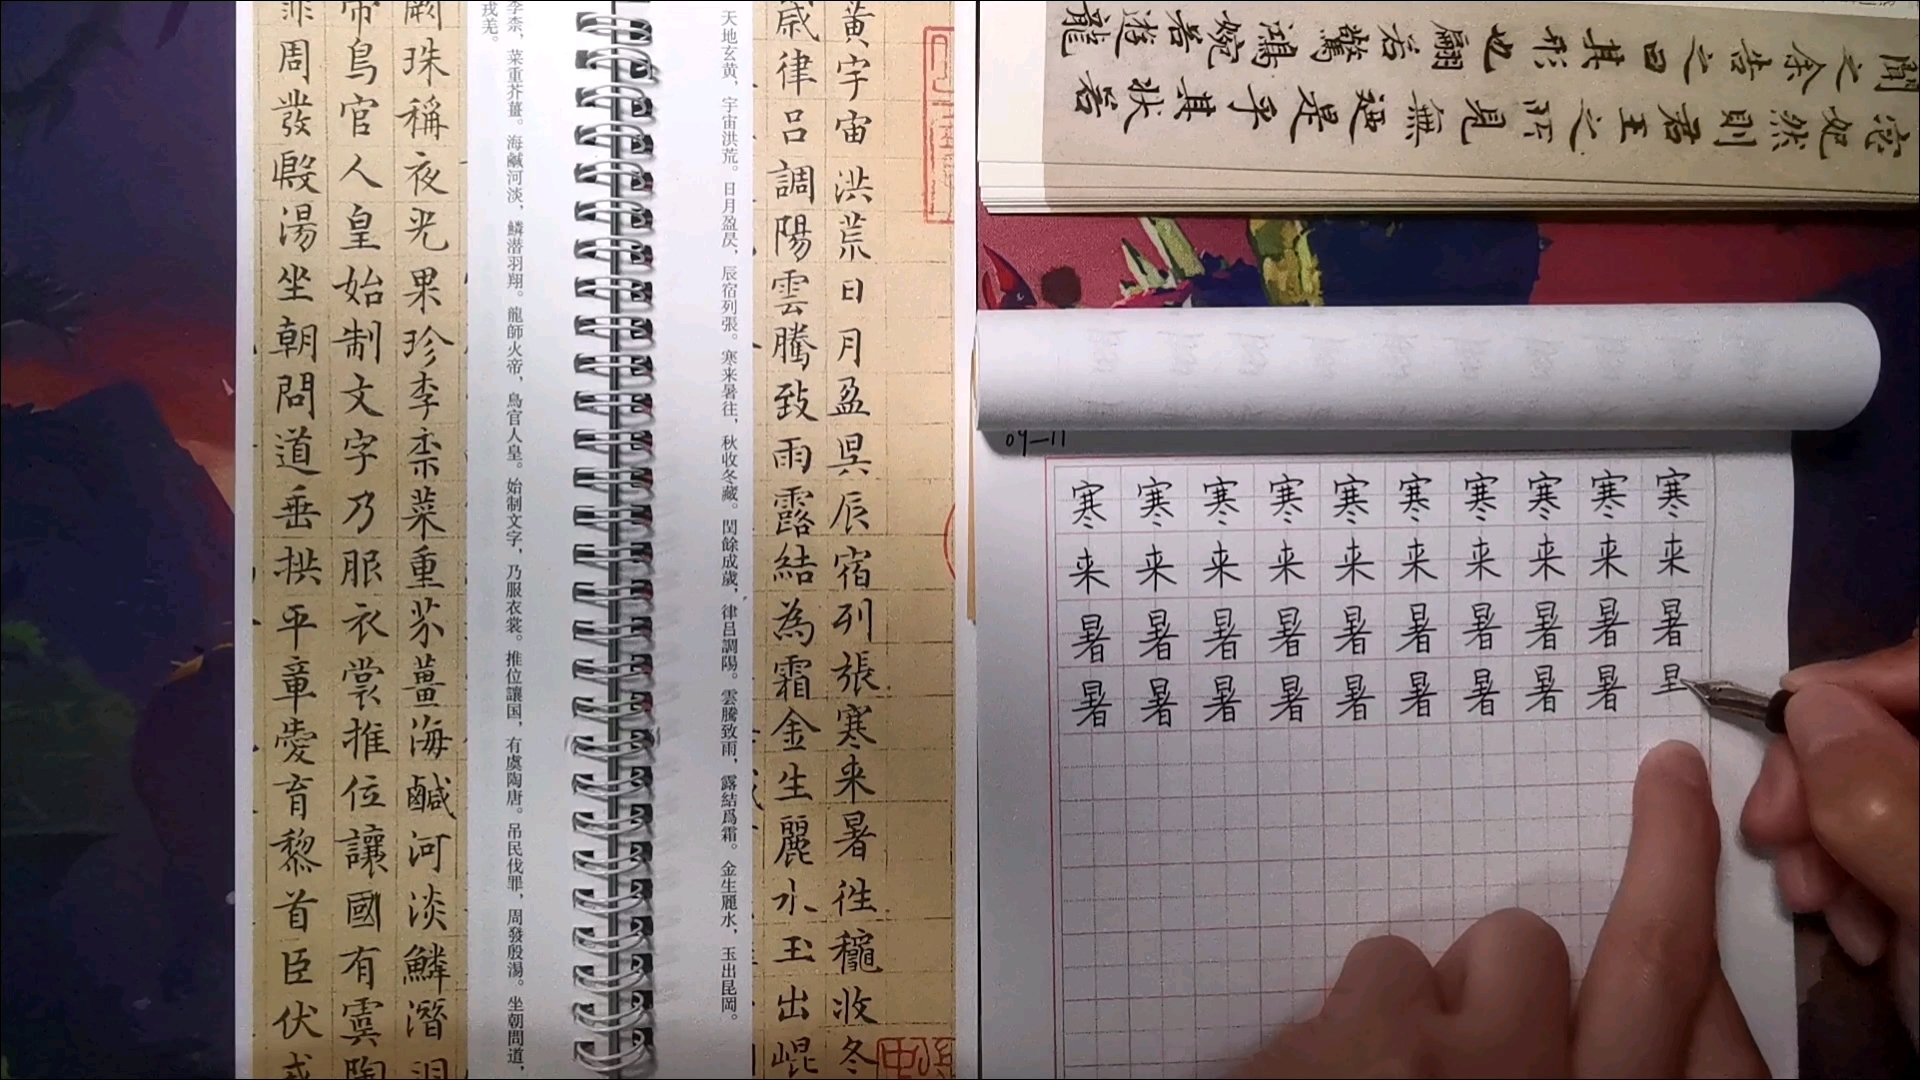 黃宇宙洪荒日月盈昃辰宿列張寒来暑往穐收冬
歲律呂調陽雲騰致雨露結為霜金生麗水玉出崐
天地玄黄，宇宙洪荒。日月盈昃，辰宿列張。寒来暑往，秋收冬藏。閏餘成歲，律吕調陽。雲騰致雨，露結爲霜。金生麗水，玉出昆岡。
李柰，菜重芥薑。海鹹河淡，鱗潜羽翔。龍師火帝，鳥官人皇。始制文字，乃服衣裳。推位讓国，有虞陶唐。吊民伐罪，周發殷湯。坐朝問道，
戎羌。
闕珠稱夜光果珍李柰菜重芥薑海鹹河淡鱗潛羽
帝鳥官人皇始制文字乃服衣裳推位讓國有虞陶
罪周發殷湯坐朝問道垂拱平章愛育黎首臣伏戎
宓妃然則君王之所見無迺是乎其狀若
聞之余告之曰其形也翩若驚鴻婉若遊龍
09—11
寒寒寒寒寒寒寒寒寒寒
来来来来来来来来来来
暑暑暑暑暑暑暑暑暑暑
暑暑暑暑暑暑暑暑暑